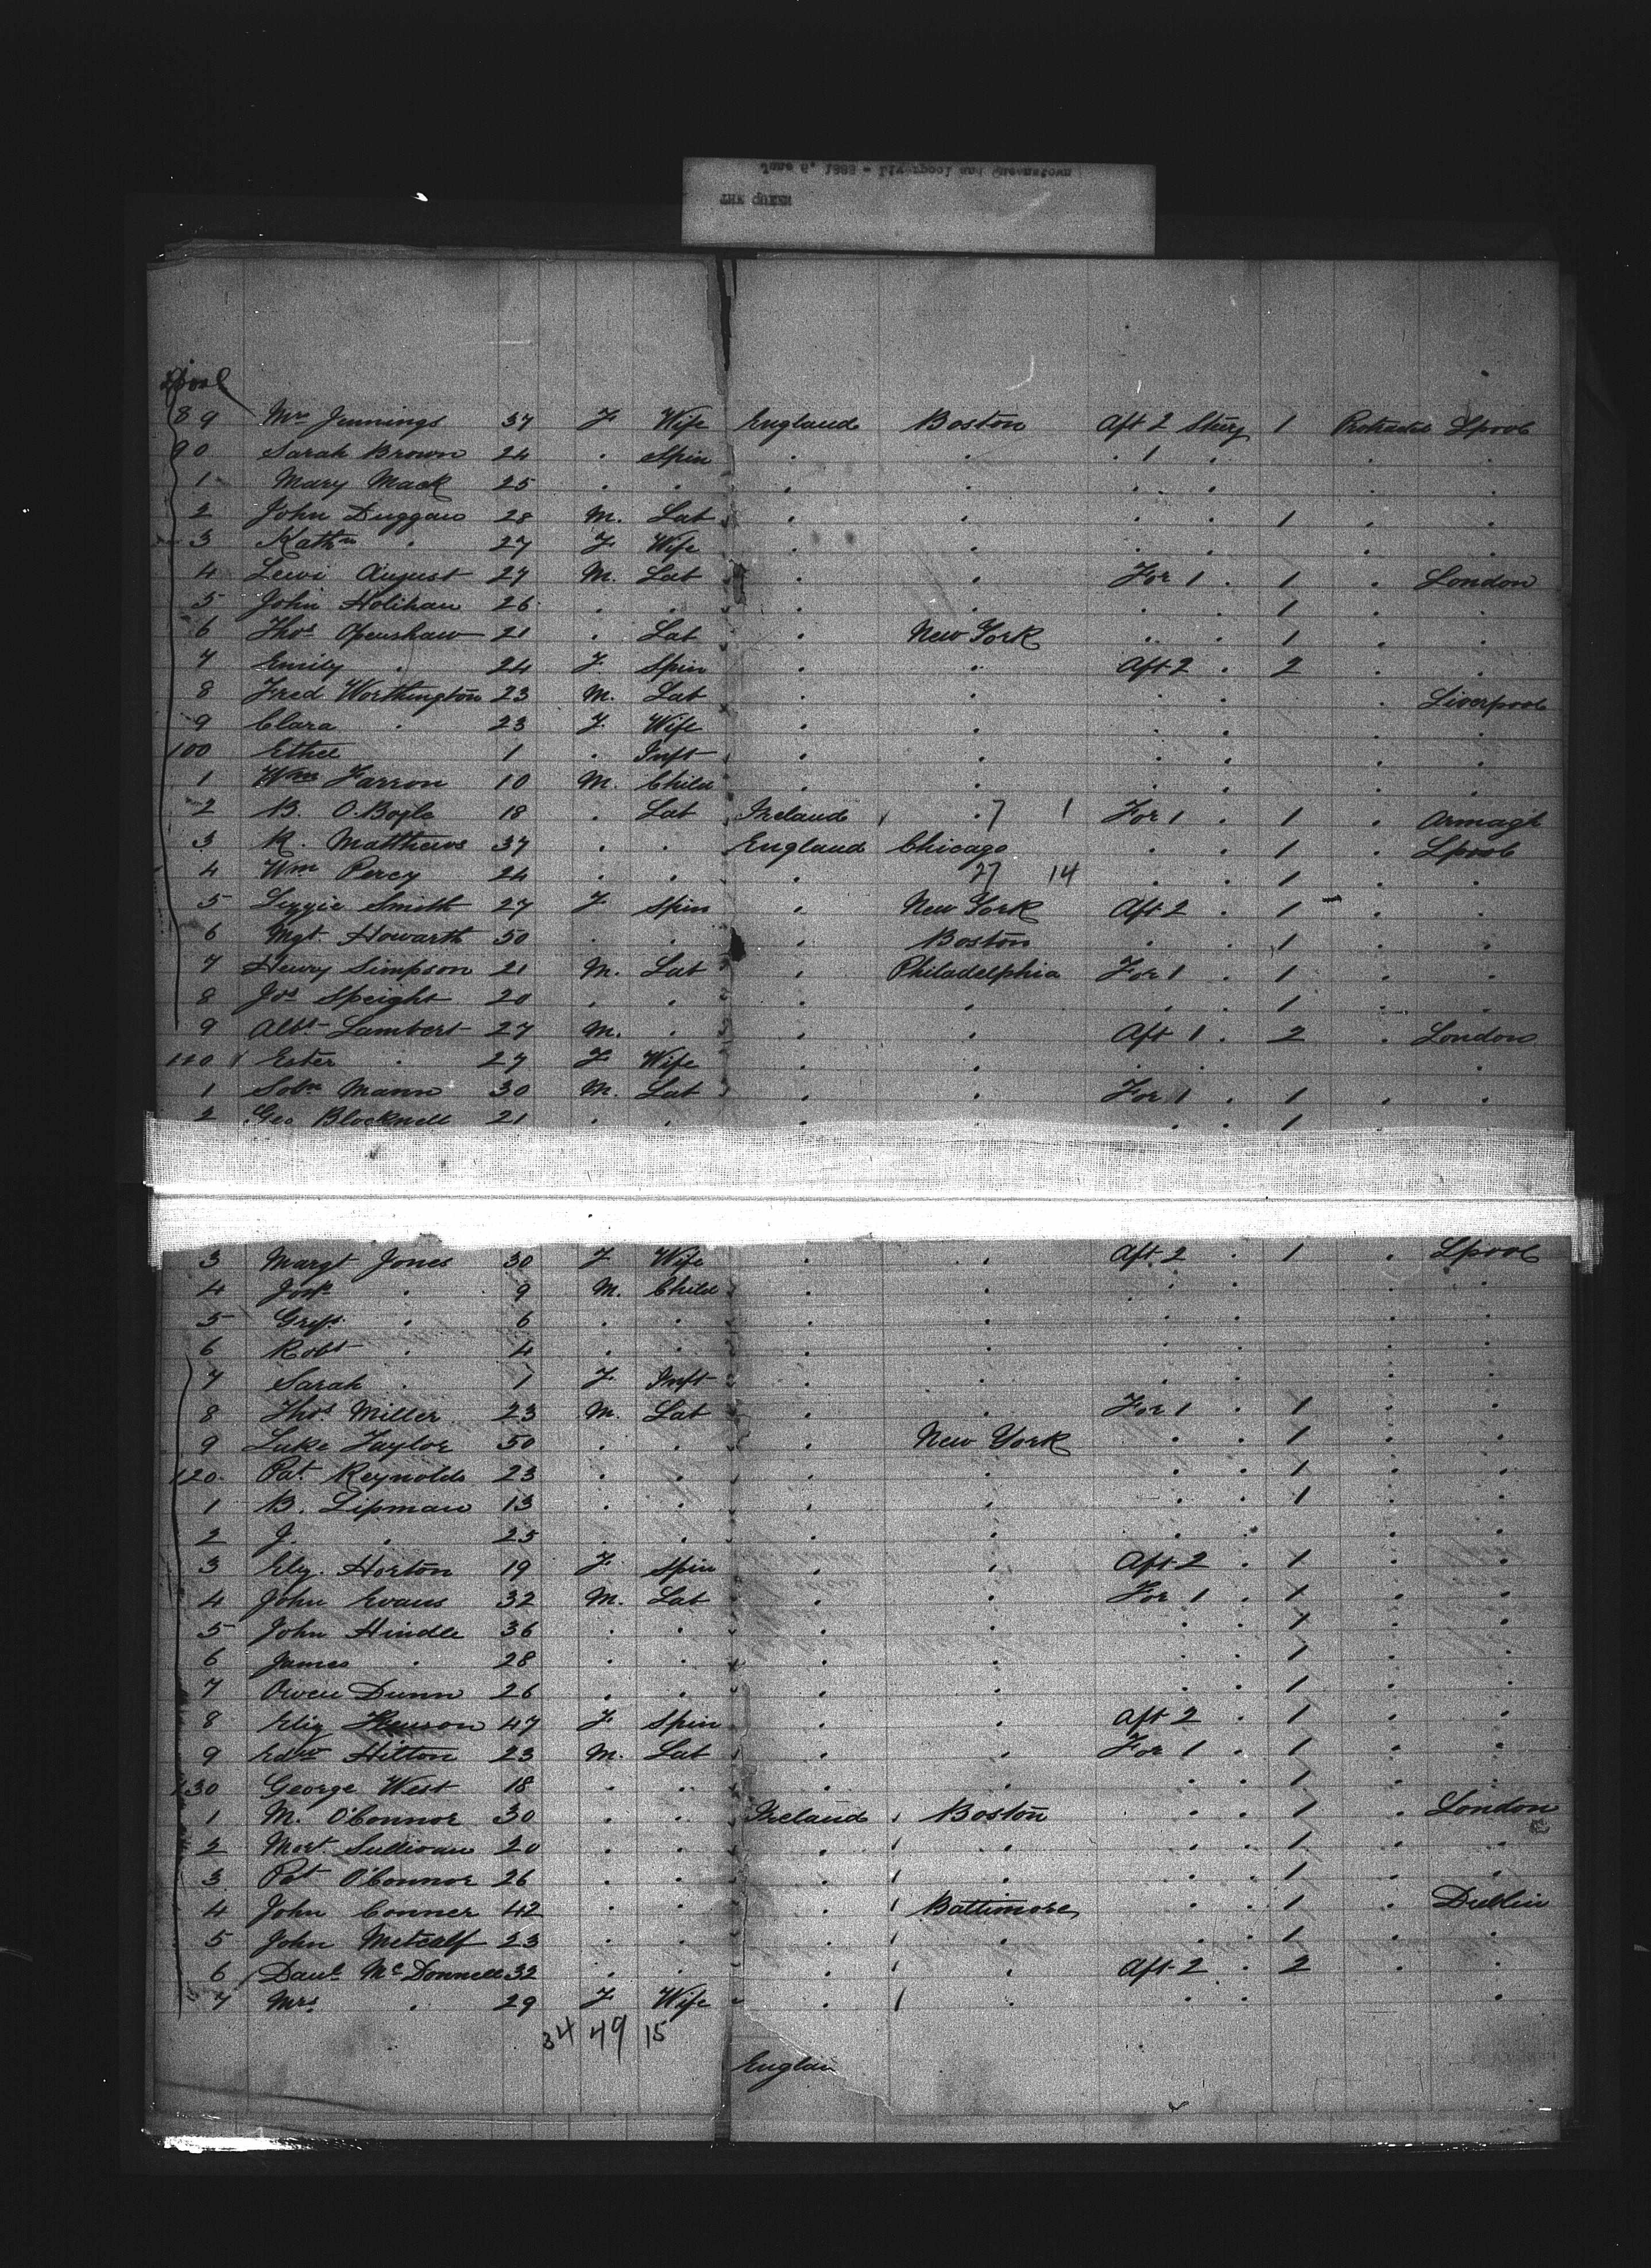 June 6, 1888 - Liverpool and Queenstown
THE QUEEN
Lpool
89 Mrs Jennings 37 F Wife England Boston Aft 2 Steerg 1 Protracted Lpool
90 Sarah Brown 24 . Spin . . . 1 . . .
1 Mary Mack 25 . . . . . . . .
2 John Duggan 28 M. Lab . . . . 1 . .
3 Kathn . 27 F Wife . . . . . .
4 Lewi August 27 M. Lab . . For 1 . 1 . London
5 John Holihan 26 . . . . . . 1 . .
6 Thos Openshaw 21 . Lab . New York . . 1 . .
7 Emily . 24 F Spin . . Aft 2 . 2 . .
8 Fred Worthington 23 M. Lab . . . . . Liverpool
9 Clara . 23 F Wife . . . . . .
100 Ethel 1 . Inft . . . . . .
1 Wm Farron 10 M. Child . . . . . .
2 B. O.Boyle 18 . Lab Ireland . 7 1 For 1 . 1 . Armagh
3 R. Matthews 37 . . England Chicago . . 1 . Lpool
4 Wm Percy 24 . . . 27 14 . . 1 . .
5 Lizzie Smith 27 F Spin . New York Aft 2 . 1 . .
6 Mgt. Howarth 50 . . . Boston . . 1 . .
7 Henry Simpson 21 M. Lab . Philadelphia For 1 . 1 . .
8 Jos Speight 20 . . . . . . 1 . .
9 Albt Lambert 27 M. . . . Aft 1 . 2 . London
110 Ester . 27 F Wife . . . . .
1 Soln Mann 30 M. Lab . . For 1 . 1 . .
2 Geo Blocknell 21 . . . . . . 1 .
3 Margt Jones 30 F Wife . . Aft 2 . 1 . Lpool
4 Josh . 9 M. Child . . . . . .
5 Griff. . 6 . . . . . . . .
6 Robt . 4 . . . . . . . .
7 Sarah . 1 F Inft . . . . . .
8 Thos Miller 23 M. Lab . . For 1 . 1 . .
9 Luke Taylor 50 . . . New York . . 1 . .
120 Pat Reynolds 23 . . . . . . 1 . .
1 B. Lipman 13 . . . . . . 1 . .
2 J. . 25 . . . . . . . .
3 Eliz. Horton 19 F Spin . . Aft 2 . 1 . .
4 John Evans 32 M. Lab . . For 1 . 1 . .
5 John Hindle 36 . . . . . . 1 . .
6 James . 28 . . . . . . 1 . .
7 Owen Dunn 26 . . . . . . 1 . .
8 Eliz 47 F Spin . . Aft 2 . 1 . .
9 Edwd Hilton 23 M. Lab . . For 1 . 1 . .
130 George West 18 . . . . . . 1 . .
1 M. O'Connor 30 . . Ireland Boston . . 1 . London
2 Mort. Sullivan 20 . . . . . . 1 . .
3 Pat O'Connor 26 . . . . . . 1 . .
4 John Conner 42 . . . Baltimore . . 1 . Dublin
5 John Metcalf 23 . . . . . . 1 . .
6 Danl McDonnell 32 . . . . Aft 2 . 2 . .
7 Mrs . 29 F Wife . . . . .
34 49 15
Englan